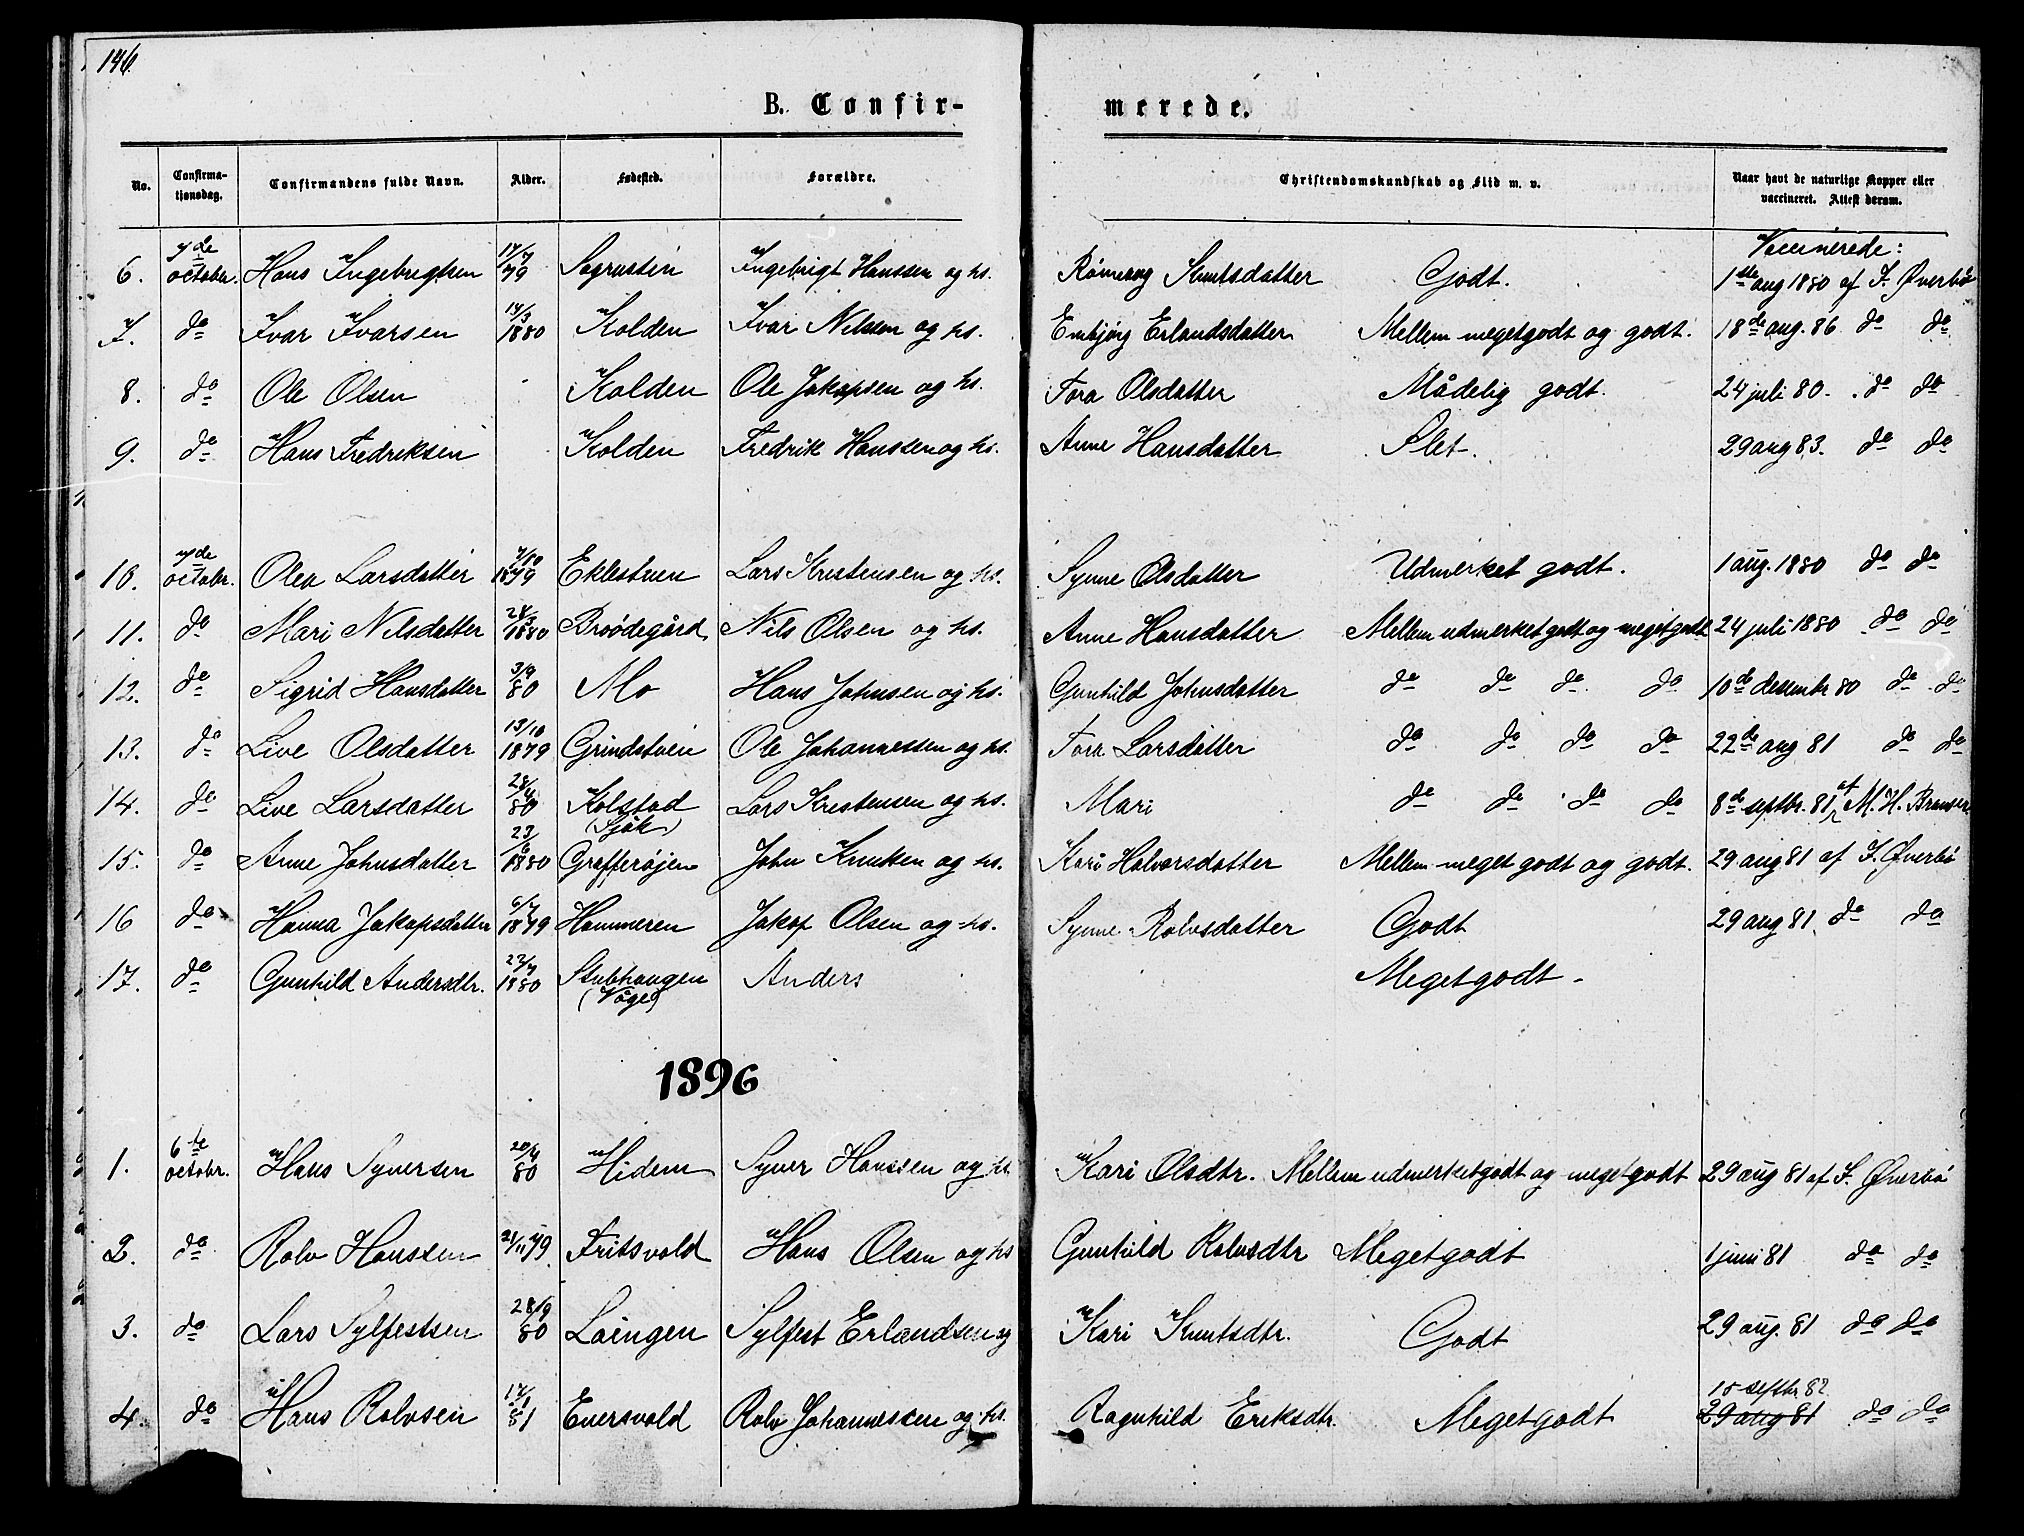 146.
B. Confir-
merede.
No. Confirma-tionsdag. Confirmandens fulde Navn. Alder. Fødested. Forældre. Christendomskundskab og Flid m. v. Naar havt de naturlige Kopper eller vaccineret. Attest derom.
Vaccinerede:
6. 7de octobr. Hans Ingebrigtsen 17/7 79 Sogrusten Ingebrigt Hanssen og hs. Rønnaug Knutsdatter Godt. 1ste aug 1880 af I. Øverbø
7. do Ivar Ivarsen 14/3 1880 Kolden Ivar Nilsen og hs. Embjørg Erlandsdatter Mellem megetgodt og godt. 18de aug. 86 do do
8. do Ole Olsen Kolden Ole Jakopsen og hs. Tora Olsdatter Mådelig godt. 24 juli 80. do do
9. do Hans Fredriksen Kolden Fredrik Hanssen og hs. Anne Hansdatter Slet. 29 aug 83. do do
10. 7de octobr. Olea Larsdatter 7/10 1879 Eklestuen Lars Kristensen og hs. Synne Olsdatter Udmerket godt. 1 aug. 1880 do do
11. do Mari Nilsdatter 28/3 1880 Broødegård Nils Olsen og hs. Anne Hansdatter Mellem udmerketgodt og megetgodt 24 juli 1880 do do
12. do Sigrid Hansdatter 3/9 80 Mo Hans Johnsen og hs. Gunhild Johnsdatter do do do do 10de desembr 80 do do
13. do Live Olsdatter 13/10 1879 Grindstuen Ole Johannessen og hs. Tora Larsdatter do do do do 22de aug 81 do do
14. do Live Larsdatter 28/4 80 Kolstad (Sjåk) Lars Kristensen og hs. Mari do do do do 8de septbr. 81 af M. H. Bronser
15. do Anne Johnsdatter 23/6 1880 Grafferøjen John Knutsen og hs. Kari Halvorsdatter Mellem meget godt og godt. 29 aug 81 af I. Øverbø
16 do Hanna Jakopsdatter 6/7 1879 Hammeren Jakop Olsen og hs. Synne Rolvsdatter Godt 29 aug 81. do do
17. do Gunhild Andersdtr. 23/7 1880 Stubhaugen (Våge) Anders Megetgodt
1896
1. 6te octobr. Hans Syversen 20/4 80 Hidem Syver Hanssen og hs Kari Olsdtr. Mellem udmerketgodt og megetgodt 29 aug 81 af I. Øverbø
2. do Rolv Hanssen 21/11 79. Fritsvold Hans Olsen og hs Gunhild Rolvsdtr Megetgodt 1 juni 81 do do
3. do Lars Sylfestsen 28/9 80 Loingen Sylfest Erlandsen og Kari Knutsdtr. Godt 29 aug. 81 do do
4. do Hans Rolvsen 17/1 81 Enersvold Rolv Johannessen og hs. Ragnhild Eriksdtr. Megetgodt 15 septbr 82 29 aug 81 do do